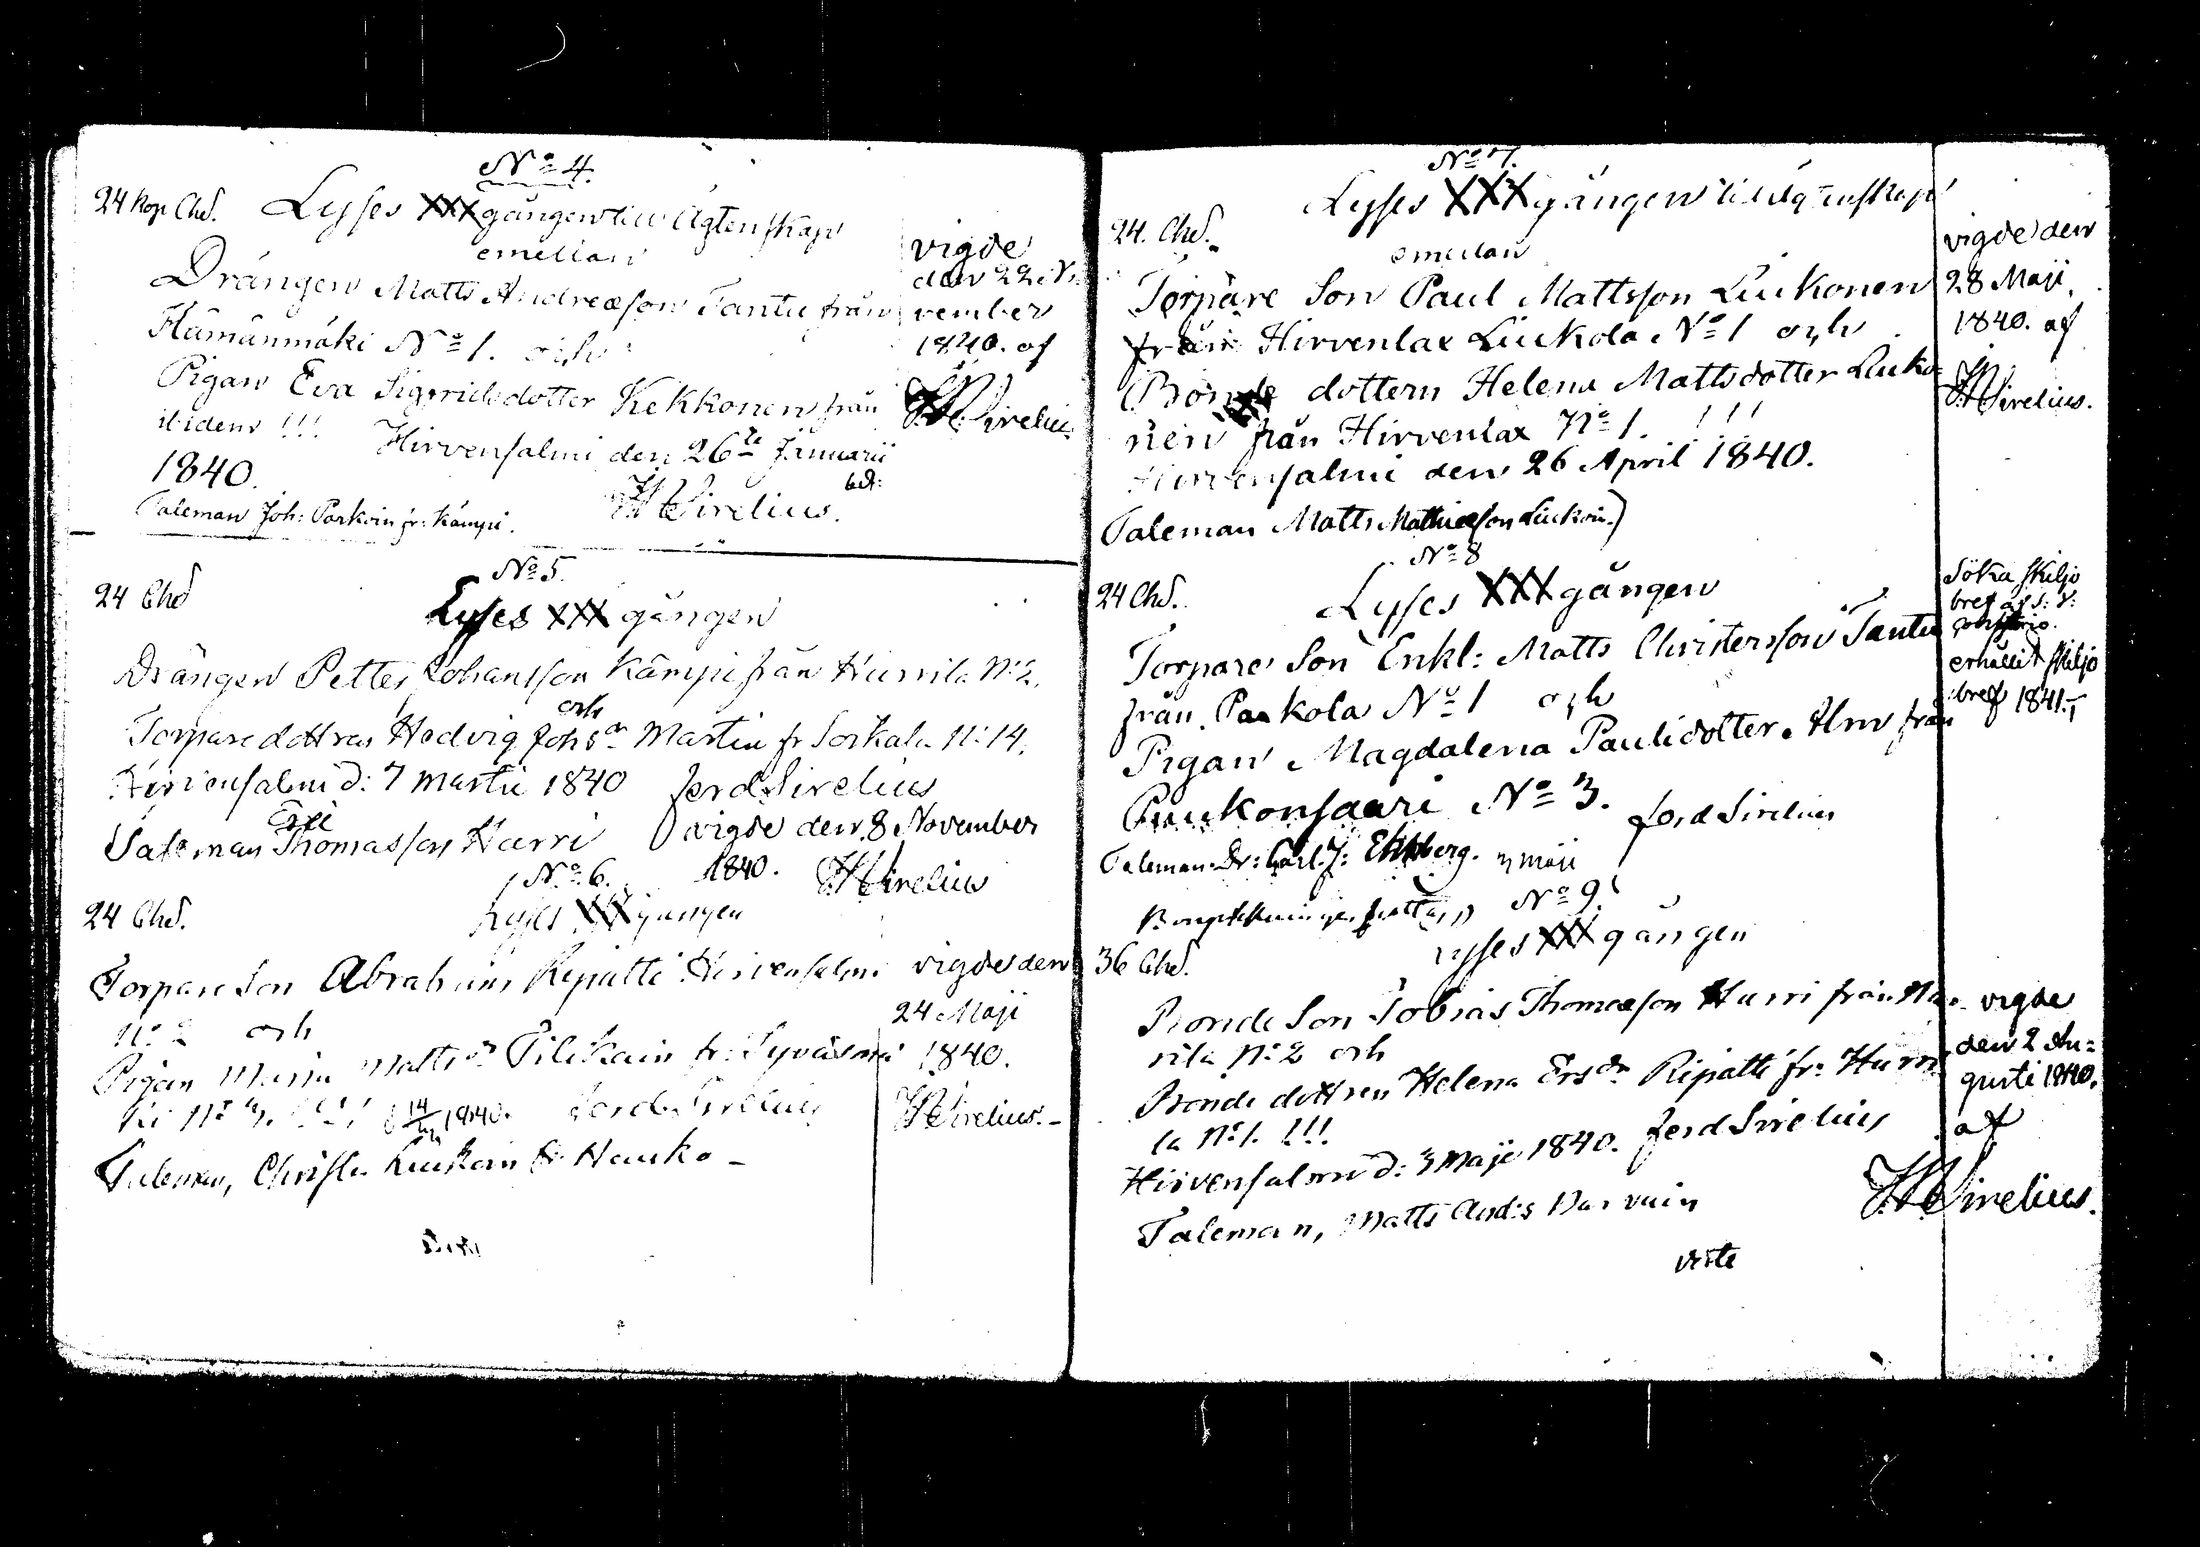 No 4.
24 Kop Chd. Lyses XXX gången till Ägtenskap
emellan
Drängen Matts Andreæson Tantu från
Hämänmäki No 1. och
Pigan Eva Sigfridsdotter Kekkonen från
ibidem !!! Hirvensalmi den 26te Januarii
1840.
Taleman Joh: Parkoin fr: Kämpi.
vigde
den 22 No
vember
1840. af
Sirelius
No 5.
24 Chd
Lyses XXX gången
Drängen Petter Johansson Kämpi från Hurrila No 2.
och
Torparedottren Hedvig Johsdr Martin fr Sorkala No 14.
Hirvensalmi d: 7 Martii 1840 Ferd Sirelius
Taleman Thomasson Hurri vigde den 8 November
1840. Sirelius
No 6.
24 Chd.
Lyses XXX gången
Torpare Son Abraham Ripatti Hirvensalmi
No 2 och
Pigan Maria Mattsdr Pilikain fr: Syväsmä
ki No !!! 1840. Ferd Sirelius
Taleman, Christer Liukoin fr Hauko –
vigde den
24 Maji
1840.
Sirelius. –
No 7.
Lyses XXX gången till ägtenskap
24. Chd.
emellan
Torpare Son Paul Mattsson Liukonen
från Hirvenlax Liukola No 1 och
Bonde dottern Helena Mattsdotter Liuko=
nen från Hirvenlax No 1. !!!
Hirvensalmi den 26 April 1840.
Taleman Matts Mathiæson Liukoin.)
vigde den
28 Maji,
1840. af
Sirelius.
No 8
24 Chd.
Lyses XXX gången
Torpare Son Enkl: Matts Christersson Tantu
från Paukola No 1 och
Pigan Magdalena Paulidotter från
Puukonsaari No 3. Ferd Sirelius
Taleman Dr: Carl J: Ehrberg. 3 Maji
Söka skiljo
bref
erhållit skiljo
bref 1841.
No 9.
36 Chd.
Lyses XXX gången
Bonde Son Tobias Thomæson Hurri från Hur
rila No 2 och
Bonde dottren Helena Ersdr Ripatti fr: Hurri
la No 1. !!!
Hirvensalmi d: 3 Maji 1840. Ferd Sirelius
Taleman, Matts Ands Harvain
verte
vigde
den 2 Au=
gusti 1840.
af
Sirelius.